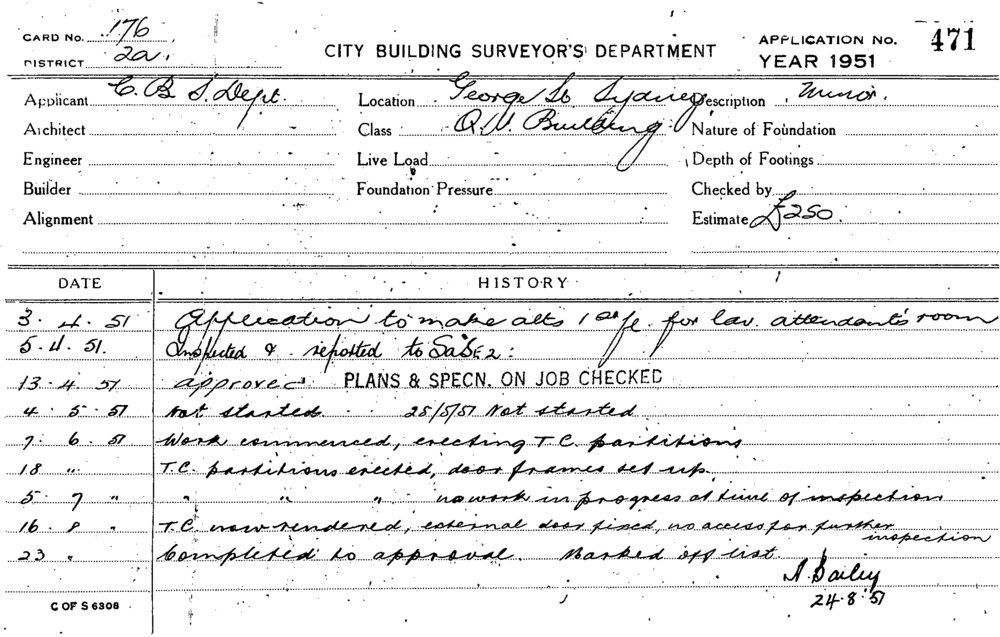 CARD No. 176
DISTRICT 2a.
CITY BUILDING SURVEYOR'S DEPARTMENT
APPLICATION No. 471
YEAR 1951
Applicant C.B.S. Dept. Location George St Sydney Description Minor.
Architect Class Q.V. Building Nature of Foundation
Engineer Live Load Depth of Footings
Builder Foundation Pressure Checked by
Alignment Estimate £250.
DATE HISTORY
3. 4. 51 Application to make alts 1st fl. for lav. attendant's room
5. 4. 51. Inspected & reported to
13. 4. 51 approved PLANS & SPECN. ON JOB CHECKED
4. 5. 51 Not started. 25/5/51 Not started
7. 6. 51 Work commenced, erecting T.C. partitions
18 " T.C. partitions erected, door frames set up.
5 7 " " " " no work in progress at time of inspection
16. 8 " T.C. now rendered, external door fixed, no access for further inspection
23 " Completed to approval. Marked off list
Bailey
24.8.51
C OF S 6308